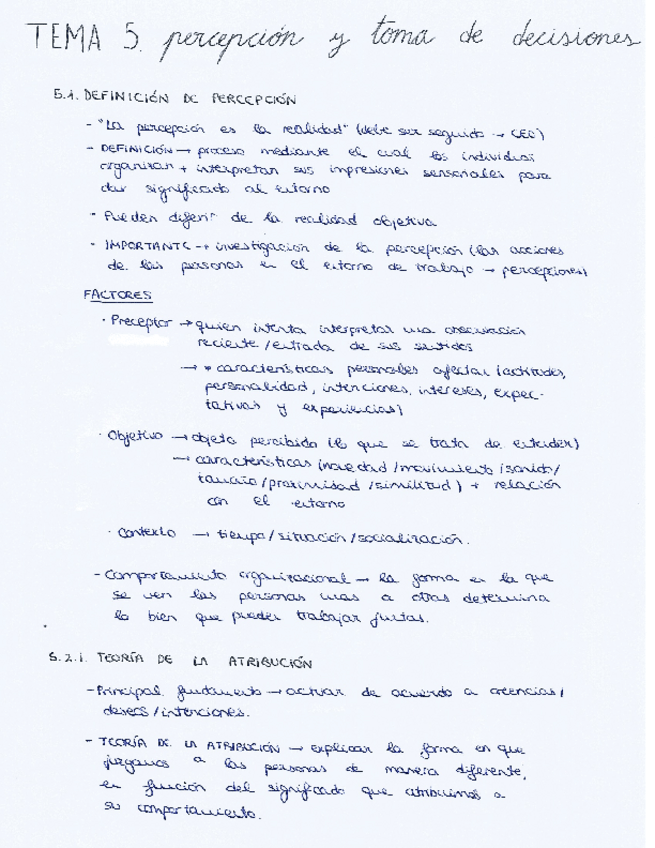 TEMA 5. percepción y toma de decisiones
5.1. DEFINICIÓN DE PERCEPCIÓN
- "La percepción es la realidad" (debe ser seguido → CEC)
- DEFINICIÓN → proceso mediante el cual los individuos
organizan + interpretan sus impresiones sensoriales para
dar significado al entorno
· Pueden diferir de la realidad objetiva
· IMPORTANTE → investigación de la percepción (las acciones
de las personas en el entorno de trabajo → percepciones)
FACTORES
· Preceptor → quien intenta interpretar una
reciente/entrada de sus sentidos
→ * características personales afectan (actitudes,
personalidad, intenciones, intereses, expec-
tativas y experiencias)
· Objetivo → objeto percibido (lo que se trata de entender)
→ características (novedad/movimiento/sonido/
tamaño/proximidad/similitud) + relación
con el entorno
· Contexto → tiempo/situación/socialización.
- Comportamiento organizacional → la forma en la que
se ven las personas unas a otras determina
lo bien que pueden trabajar juntas.
5.2.1. TEORÍA DE LA ATRIBUCIÓN
- Principal fundamento → actuar de acuerdo a creencias/
deseos/intenciones.
- TEORÍA DE LA ATRIBUCIÓN → explicar la forma en que
juzgamos a las personas de manera diferente,
en función del significado que atribuimos a
su comportamiento.